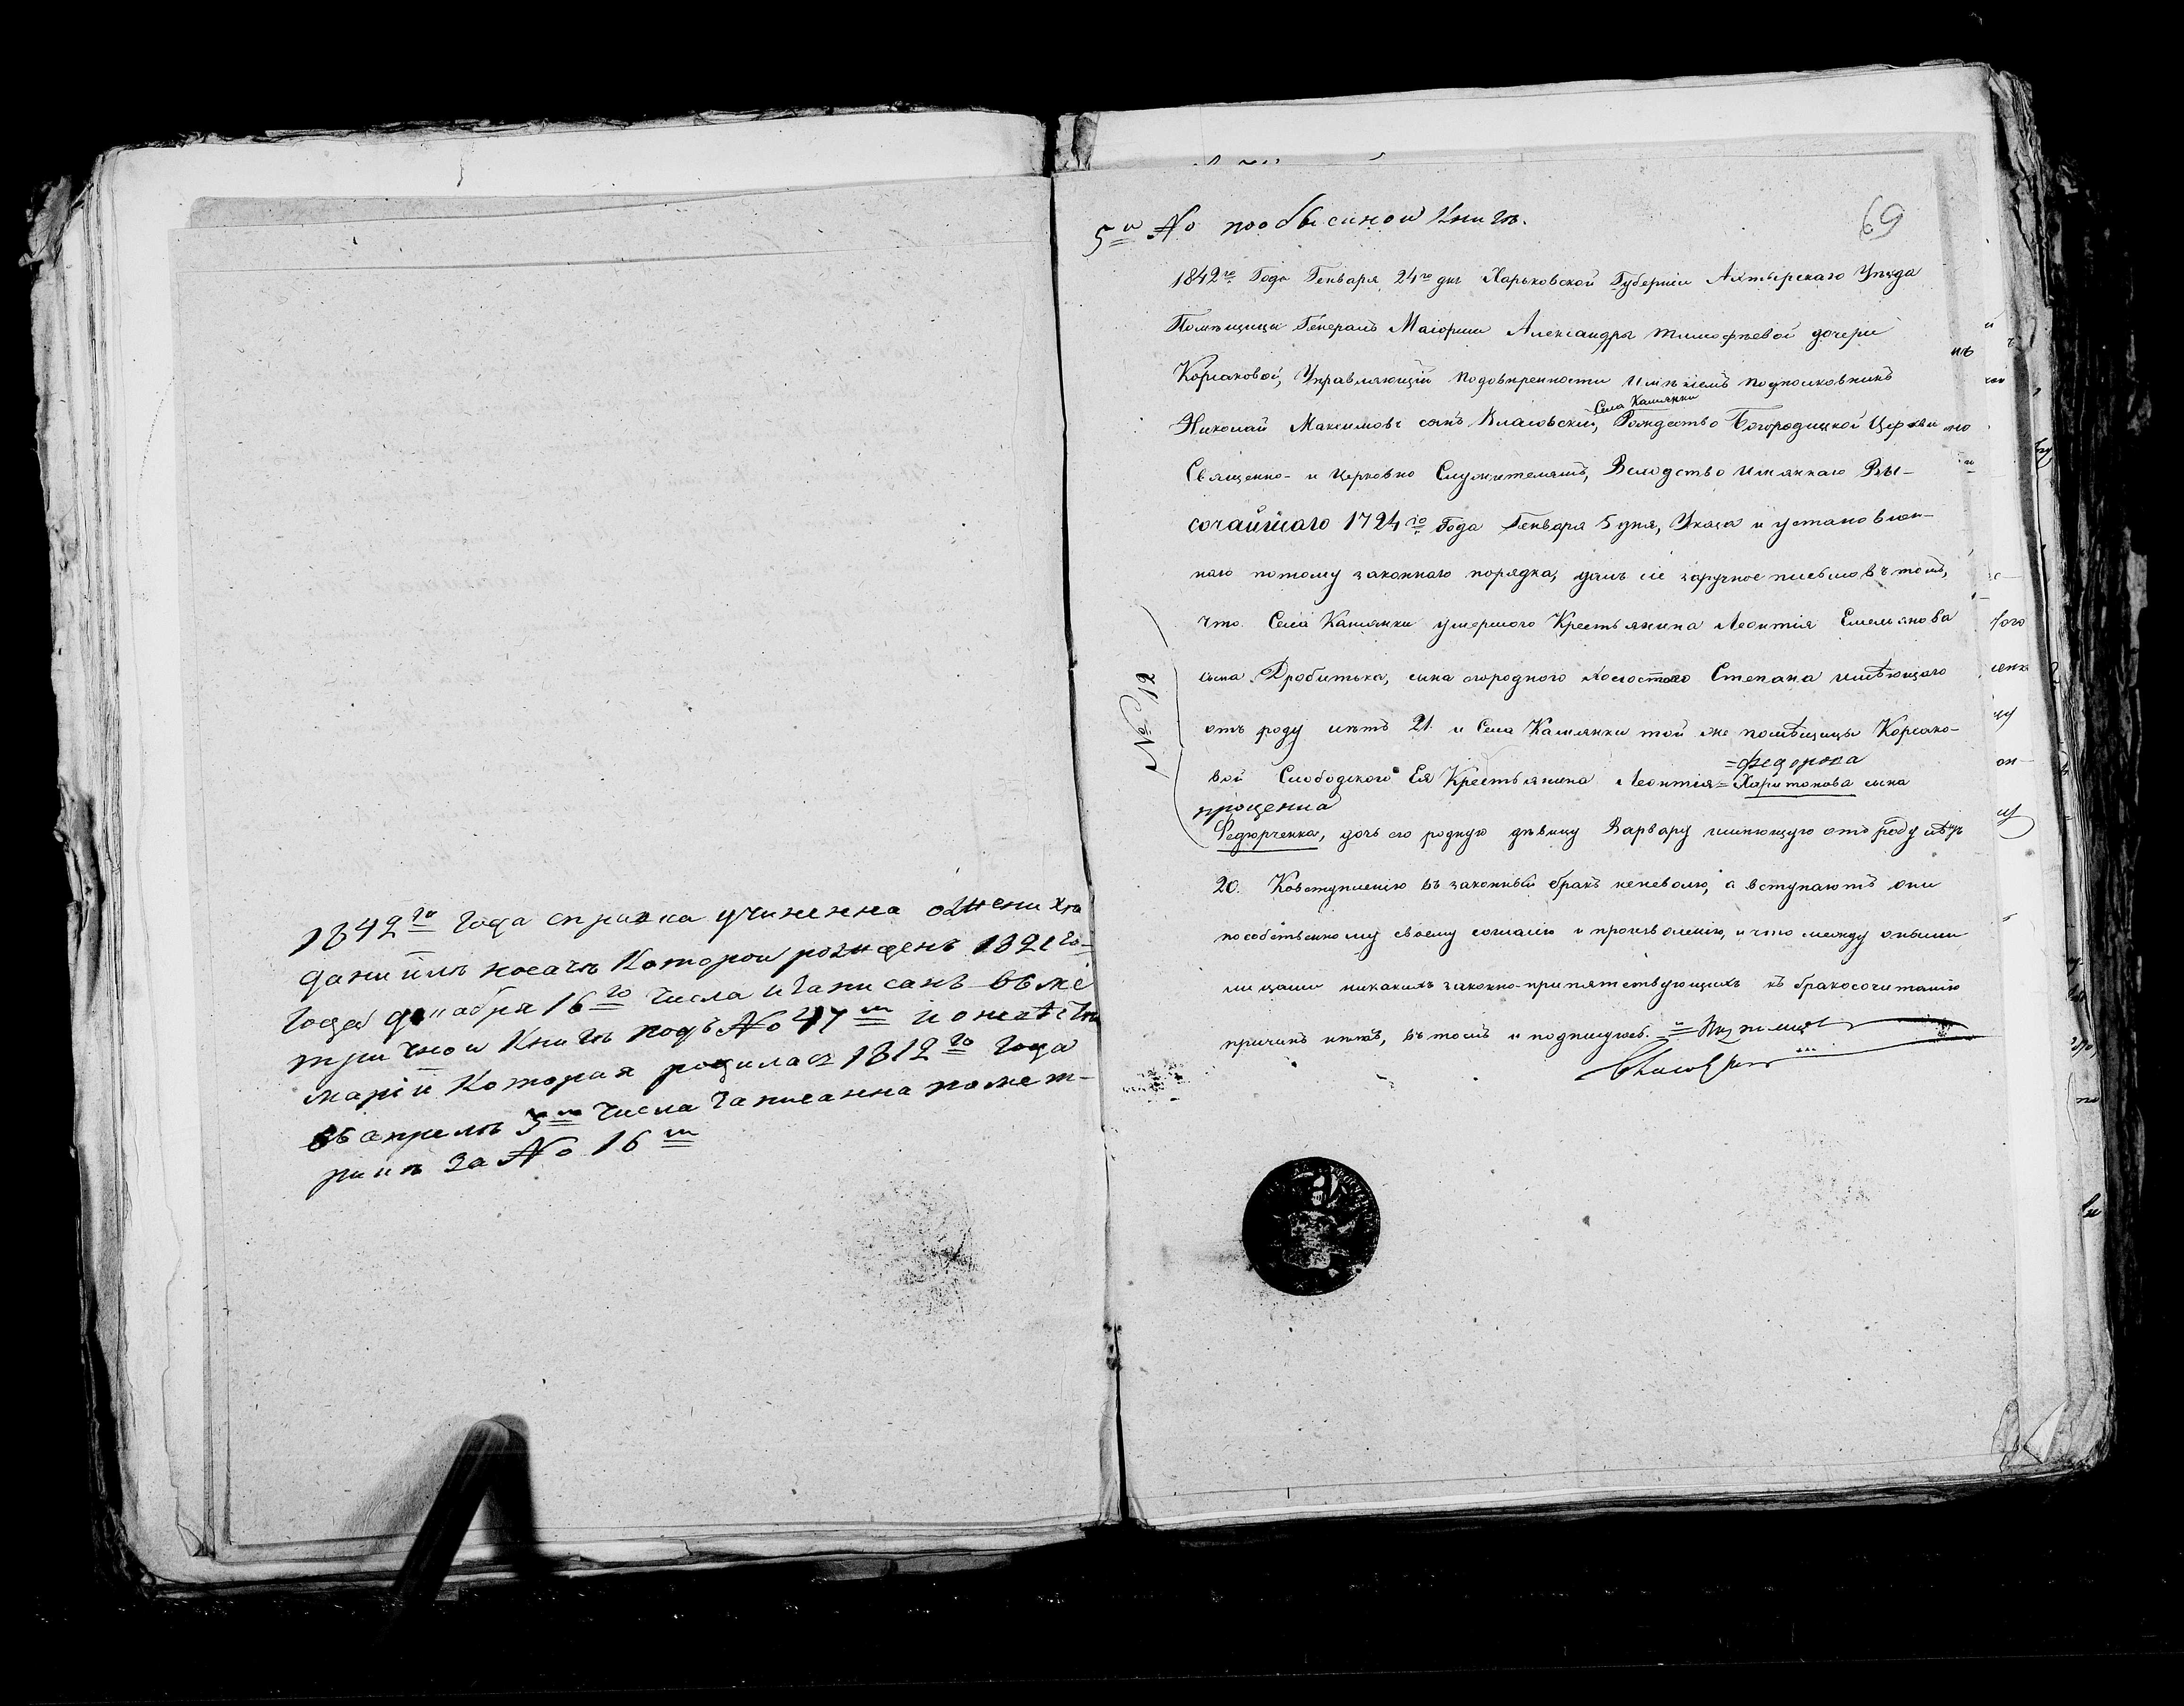 1842го Года справка учиненна о женихѣ
данiилѣ косачѣ Которой рожденъ 1821 го-
Года декабря 16го Числа и записанъ въ ме
тричной Книгѣ подъ №47м и о невѣстѣ
марiи Которая родилась 1812го Года
въ апрелѣ 5м Числа записанна по мет-
рикѣ за №16м
5й № по обыскной Книгѣ.
69
1842го Года Генваря 24го дня Харьковской Губернiи Ахтырскаго Уѣзда
Помѣщицы Генералъ Маiорши Александры Тимофѣевой дочери
Корсаковой, Управляющiй по довѣренности имѣнiемъ подполковникъ
Села Камянки
Николай Максимовъ сынъ Власовскiй, Рождество Богородицкой Церкви
Священно- и Церковно Служителямъ, Вслѣдство имяннаго Вы-
сочайшаго 1724го Года Генваря 5 дня, Указа и установлен-
наго потому законнаго порядка, далъ сiе заручное письмо въ томъ,
что Села Камянки умершого Крестьянина Леонтiя Емельянова
№ 12
сына Дробитька, сына огородного холостого Степана имѣющаго
отъ роду лѣтъ 21. и Села Камянки той же помѣщицы Корсако-
=федорова
вой Слободского Ея Крестьянина Леонтiя=Харитонова сына
прощенка
Федюрченка, дочь его родную дѣвицу Варвару имѣющую отъ роду лѣтъ
20. Ковступленiю въ законный бракъ неневолю, а вступаютъ они
пособственному своему согласiю и произволенiю, и что между оными
лицами никакихъ законно-припятствующихъ къ бракосочитанiю
причинъ нѣтъ, въ томъ и подпишуюсь.